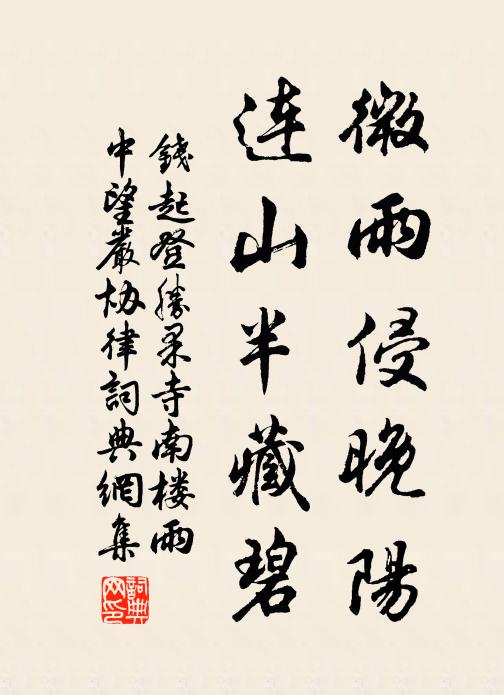 微雨侵晚陽
連山半藏碧
錢起登勝果寺南楼雨
中望嚴協律詞典網集
詞典
网印